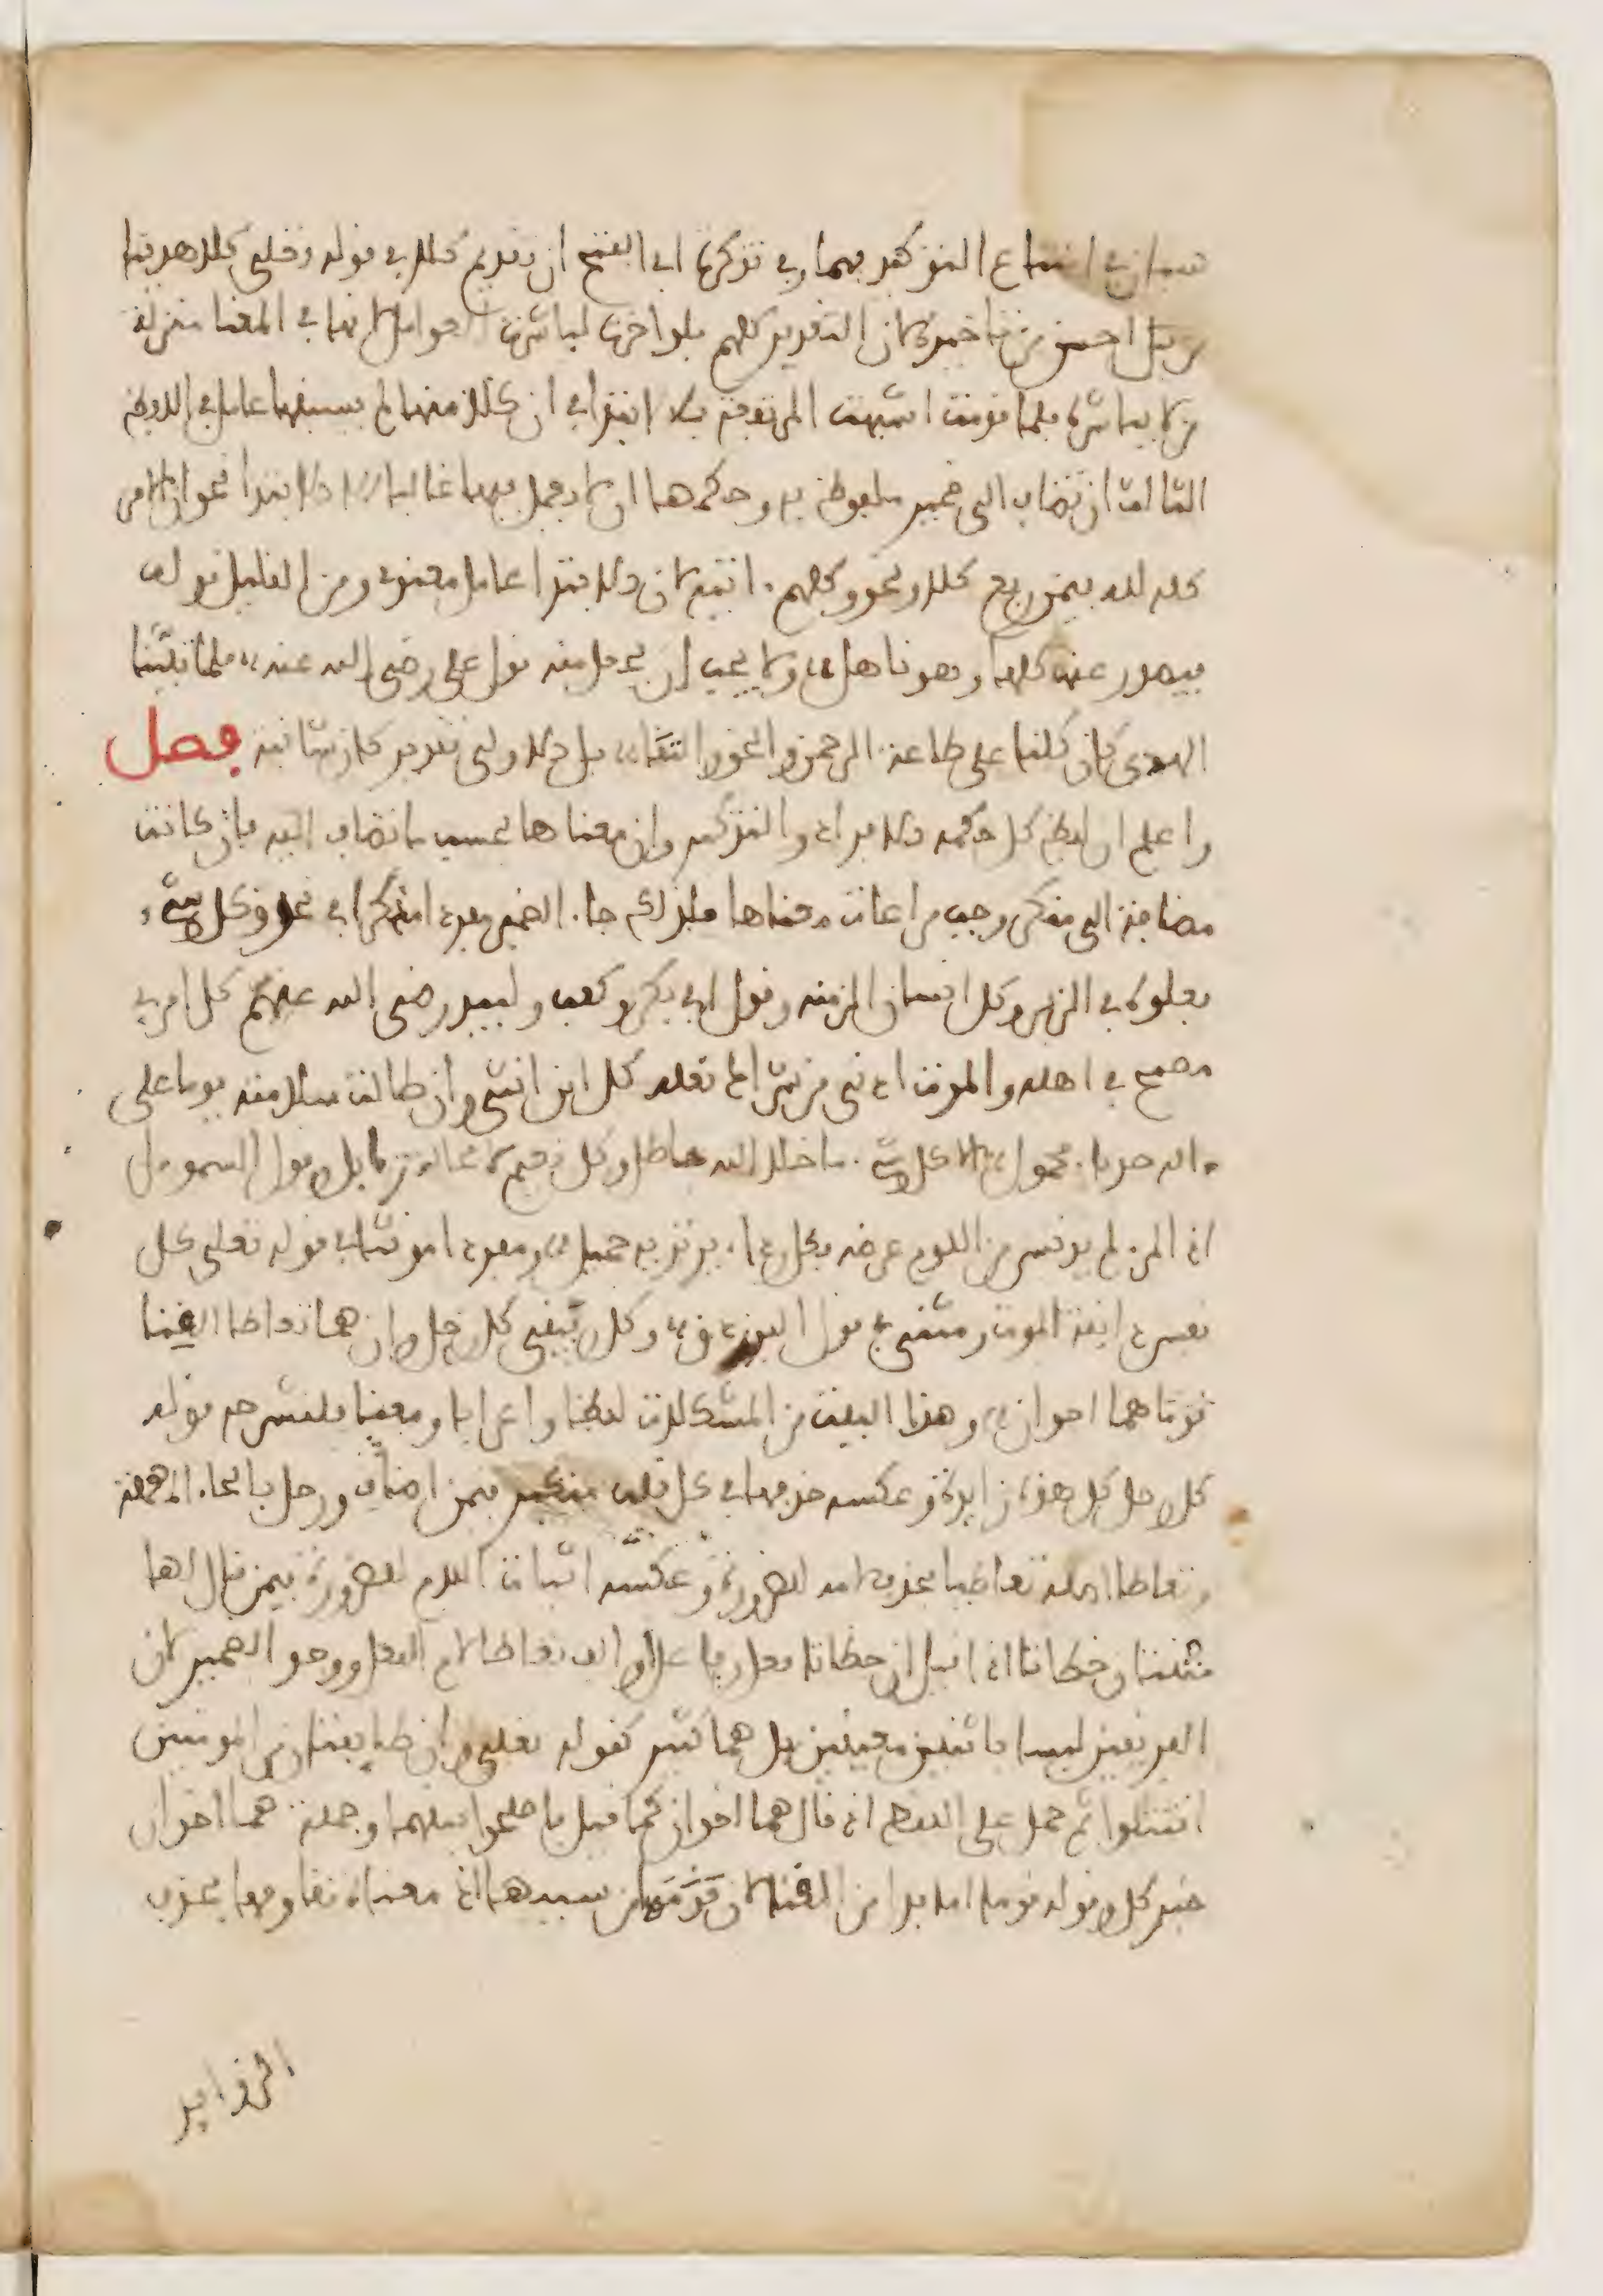 سيان في امتناع التوكيد بهما وفي تذكرة ابي الفتح ان تقديم كلا في قوله تعلى كلا هدينا
من قبل احسن من تاخيرها لان التقدير كلهم فلو اخرت لباشرت العوامل مع انها في المعنا منزلة
من لا يباشره فلما قدمت اشبهت المرتفعة بالابتدا في ان كلا منهما لم يسبقها عامل في اللفظ
الثالث ان تضاف الى ضمير ملفوظ به وحكمها ان لا يعمل فيها غالبا الا الابتدا نحو ان الامر
كله لله فيمن رفع كلا ونحو وكلهم ءاتيه لان الابتدا عامل معنوي ومن القليل قوله
فيصدر عنه كلها وهو ناهل ولا يجب ان يكون منه قول علي رضي الله عنه فلما تبينا
الهدى كان كلنا على طاعة الرحمن والحق والتقا بل الاولى تقدير كان شانية فصل
واعلم ان لفظ كل حكمه الافراد والتذكير وان معناها بحسب ما تضاف اليه فان كانت
مضافة الى منكر وجب مراعات معناها فلذلك جاء الضمير مفردا مذكرا في نحو وكل شيء
فعلوه في الزبر وكل انسان الزمنه وقول ابي بكر وكعب ولبيد رضي الله عنهم كل امرئ
مصبح في اهله والموت ادنى من شراك نعله كل ابن انثى وان طالت سلامته يوما على
ءالة حدباء محمول الا كل شيء ما خلا الله باطل وكل نعيم لا محالة زايل وقول السموءل
اذا المرء لم يدنس من اللوم عرضه فكل رداء يرتديه جميل ومفردا مونثا في قوله تعلى كل
نفس ذايقة الموت ومثنى في قول الفرزدق وكل رفيقي كل رحل وان هما تعاطا القنا
قوماهما اخوان وهذا البيت من المشكلات لفظا واعرابا ومعنا فلنشرحه قوله
كل رحل كل هذه زايدة وعكسه حذفها في كل قلب متكبر فيمن اضاف ورحل بالحاء المهملة
وتعاطا اصله تعاطيا فحذف لامه للضرورة وعكسه اثبات اللام للضرورة فيمن قال لها
متنتان خظاتا اذ قيل ان خظاتا فعل وفاعل والف تعاطا لام الفعل ووحد الضمير لان
الفريقين ليسا باثنين معينين بل هما كثير كقوله تعلى وان طايفتان من المومنين
اقتتلوا ثم حمل على اللفظ اذ قال هما اخوان كما قيل فاصلحوا بينهما وجملة هما اخوان
خبر كل وقوله قوما اما بدل من القنا لان قومهما من سببهما اذ معناه تقاومهما بحذف
الزوايد